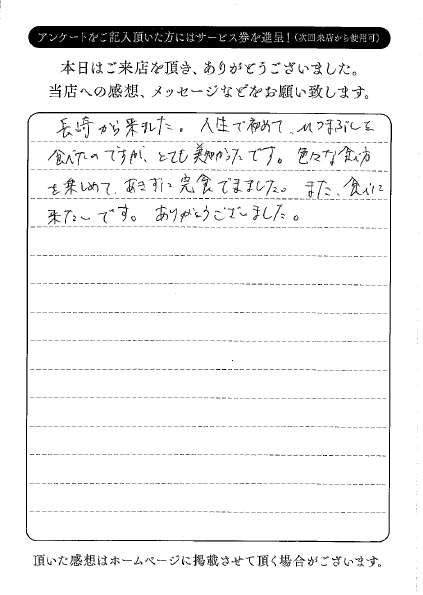 アンケートをご記入頂いた方にはサービス券を進呈!(次回来店から使用可)
本日はご来店を頂き、ありがとうございました。
当店への感想、メッセージなどをお願い致します。
長崎から来ました。人生で初めて、ひつまぶしを
食べたのですが、とても美味かったです。色々な食べ方
を楽しめて、あきずに完食できました。また、食べに
来たいです。ありがとうございました。
頂いた感想はホームページに掲載させて頂く場合がございます。